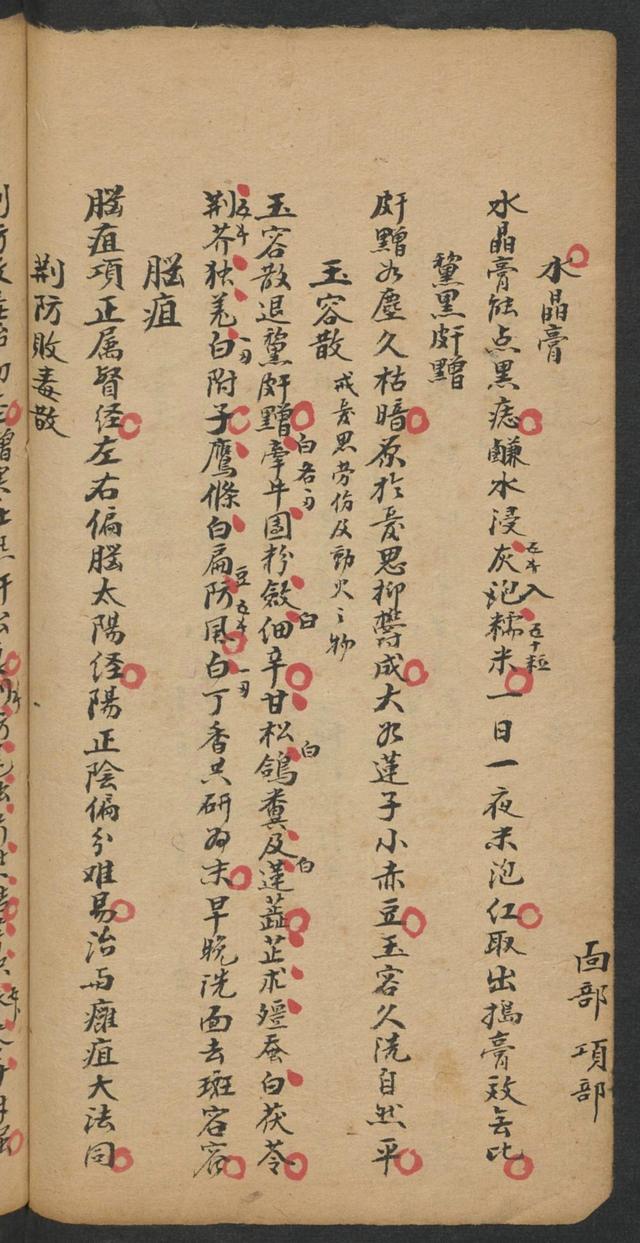 面部 項部
水晶膏
水晶膏能点黑痣鹻水浸灰泡糯米一日一夜米泡红取出搗膏效無比
五十粒
黧黑皯䵳
皯䵳如塵久枯暗原於憂思抑鬱成大如蓮子小赤豆玉容久洗自然平
玉容散 戒憂思勞伤及動火之物
玉容散退黧皯䵳牽牛團粉斂細辛甘松鴿糞及蓮蕊芷术殭蚕白茯苓
白各
白
白
白
荆芥独羌白附子鷹條白扁防風白丁香共研为末早晚洗面去斑容
豆
脳疽
脳疽項正属督经左右偏脳太陽经陽正陰偏分难易治與癰疽大法同
荆防敗毒散